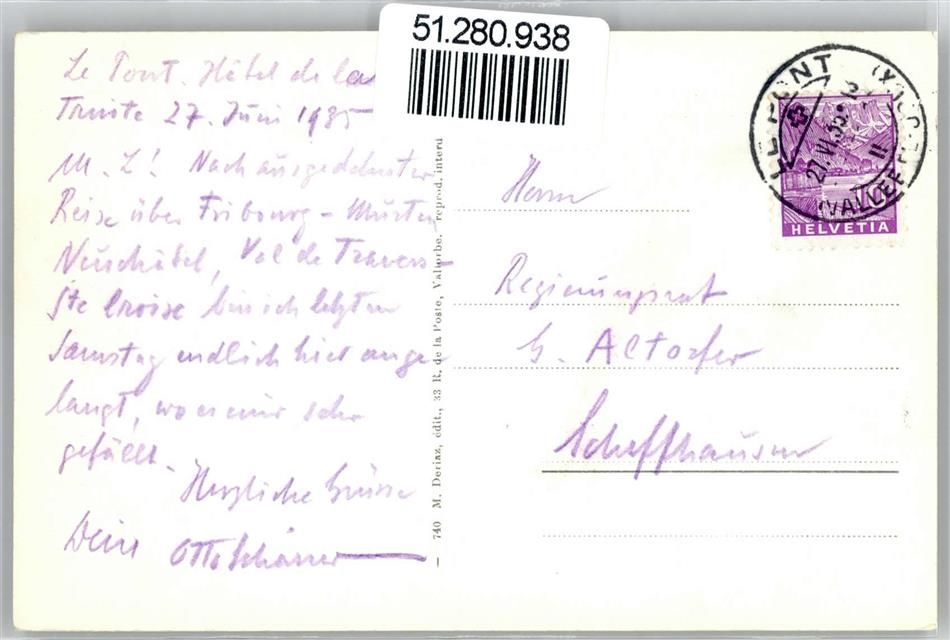 51.280.938
Le Pont. Hôtel de la
Truite 27. Juni 1935
M. L! Nach ausgedehnter
Reise über Fribourg - Murten
Neuchâtel, Val de Travers-
Ste Croix bin ich letzten
Samstag endlich hier ange
langt, wo es mir sehr
gefällt.
Herzliche Grüsse
Dein Otto
740 M. Deriaz, édit., 33 R. de la Poste, Vallorbe. reprod. interd
LE PONT
27.VI.35
(VALLÉE
HELVETIA
Herrn
Regierungsrat
G. Altorfer
Schaffhausen